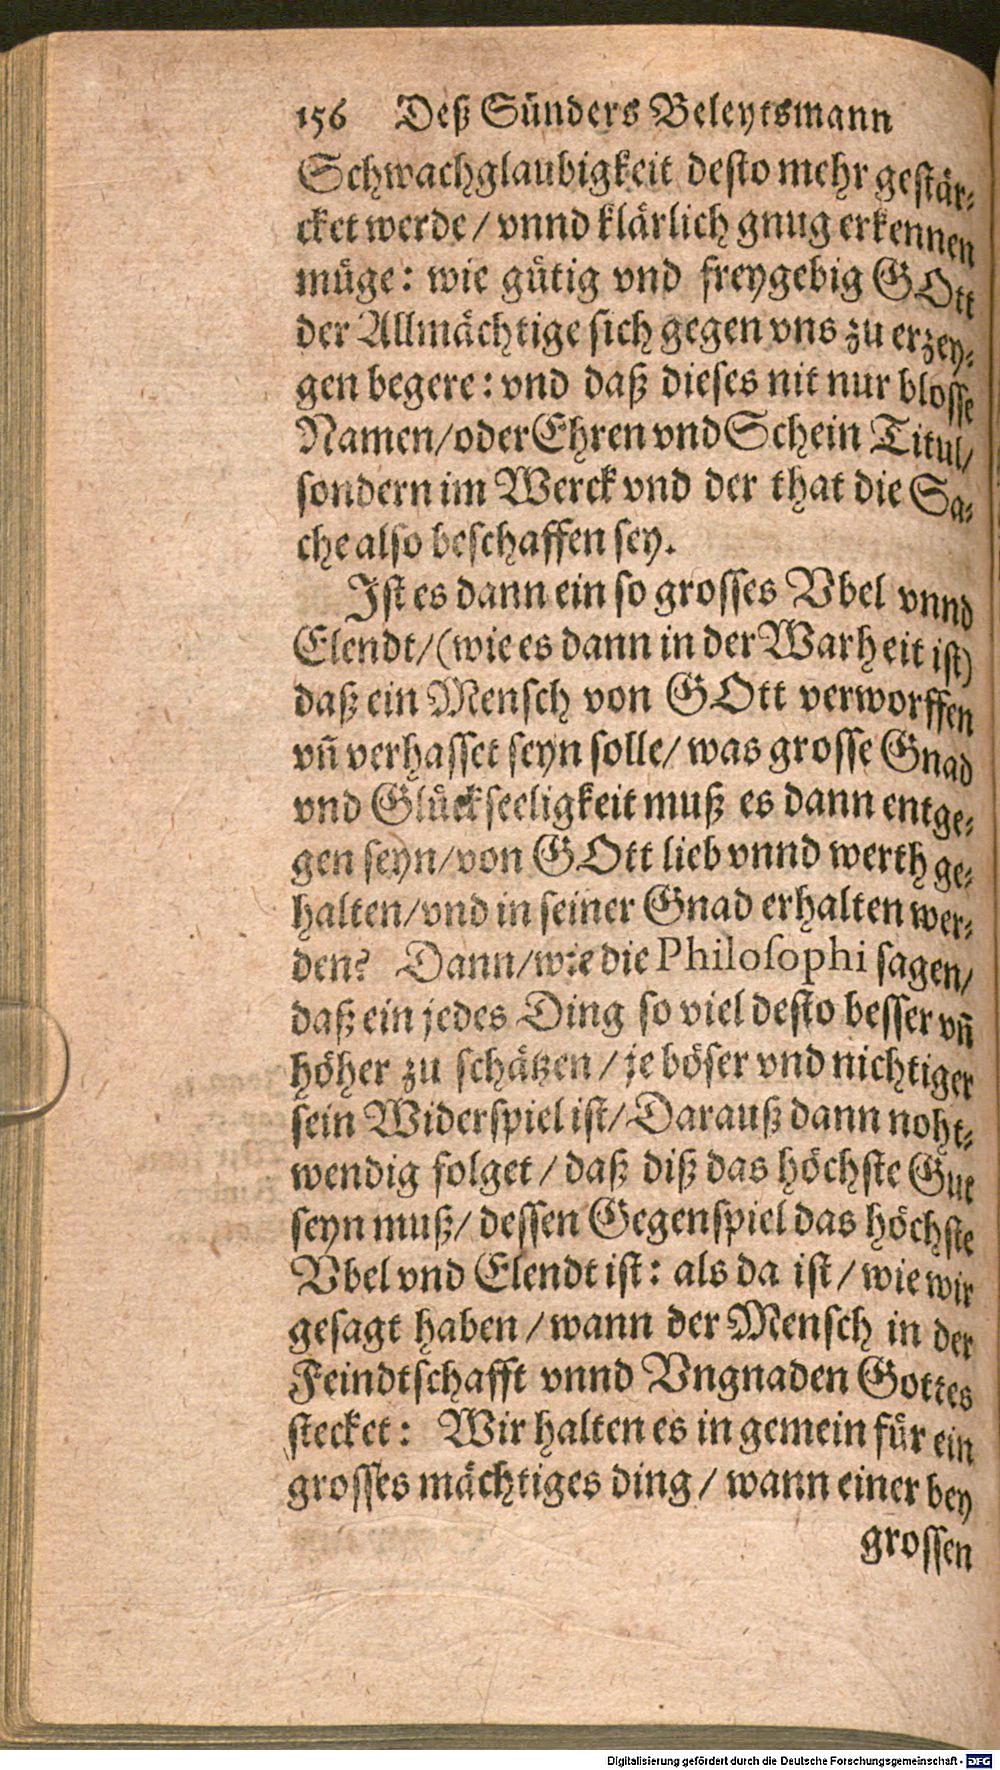 156 Deß Sünders Beleytsmann
Schwachglaubigkeit desto mehr gestär-
cket werde / vnnd klärlich gnug erkennen
müge: wie gütig vnd freygebig GOtt
der Allmächtige sich gegen vns zu erzey-
gen begere: vnd daß dieses nit nur blosse
Namen/oder Ehren vnd Schein Titul/
sondern im Werck vnd der that die Sa-
che also beschaffen sey.
Ist es dann ein so grosses Vbel vnnd
Elendt/(wie es dann in der Warheit ist)
daß ein Mensch von GOtt verworffen
vñ verhasset seyn solle/ was grosse Gnad
vnd Glückseeligkeit muß es dann entge-
gen seyn/von GOtt lieb vnnd werth ge-
halten/vnd in seiner Gnad erhalten wer-
den? Dann/wie die Philosophi sagen/
daß ein jedes Ding so viel desto besser vñ
höher zu schätzen / je böser vnd nichtiger
sein Widerspiel ist/ Darauß dann noht-
wendig folget / daß diß das höchste Gut
seyn muß/ dessen Gegenspiel das höchste
Vbel vnd Elendt ist: als da ist / wie wir
gesagt haben / wann der Mensch in der
Feindtschafft vnnd Vngnaden Gottes
stecket: Wir halten es in gemein für ein
grosses mächtiges ding / wann einer bey
grossen
Digitalisierung gefördert durch die Deutsche Forschungsgemeinschaft - DFG